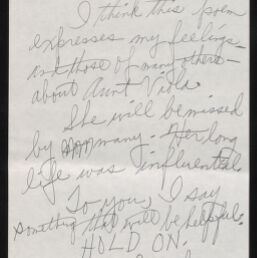 I think this poem
expresses my feelings
and those of many others -
about Aunt Viola.
She will be missed
by many. Her long
life was influential.
To you, I say
something that will be helpful.
HOLD ON.